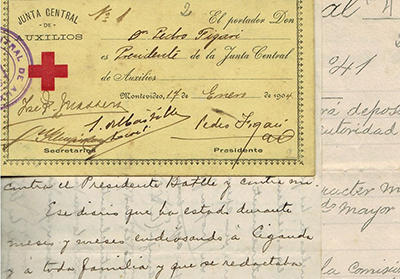 JUNTA CENTRAL
DE
AUXILIOS
Nº 1
2
El portador Don
Dr Pedro Figari
es Presidente de la Junta Central
de Auxilios.
Montevideo, 17 de Enero de 1904
Pedro Figari
Secretarios
Presidente
contra el Presidente Batlle y contra mi.
Ese diario que ha estado durante
meses y meses endiosando á Ciganda
y á toda familia y que se redactaba
al
241
rá depos
utoridad
aracter m
mayor
la comisió